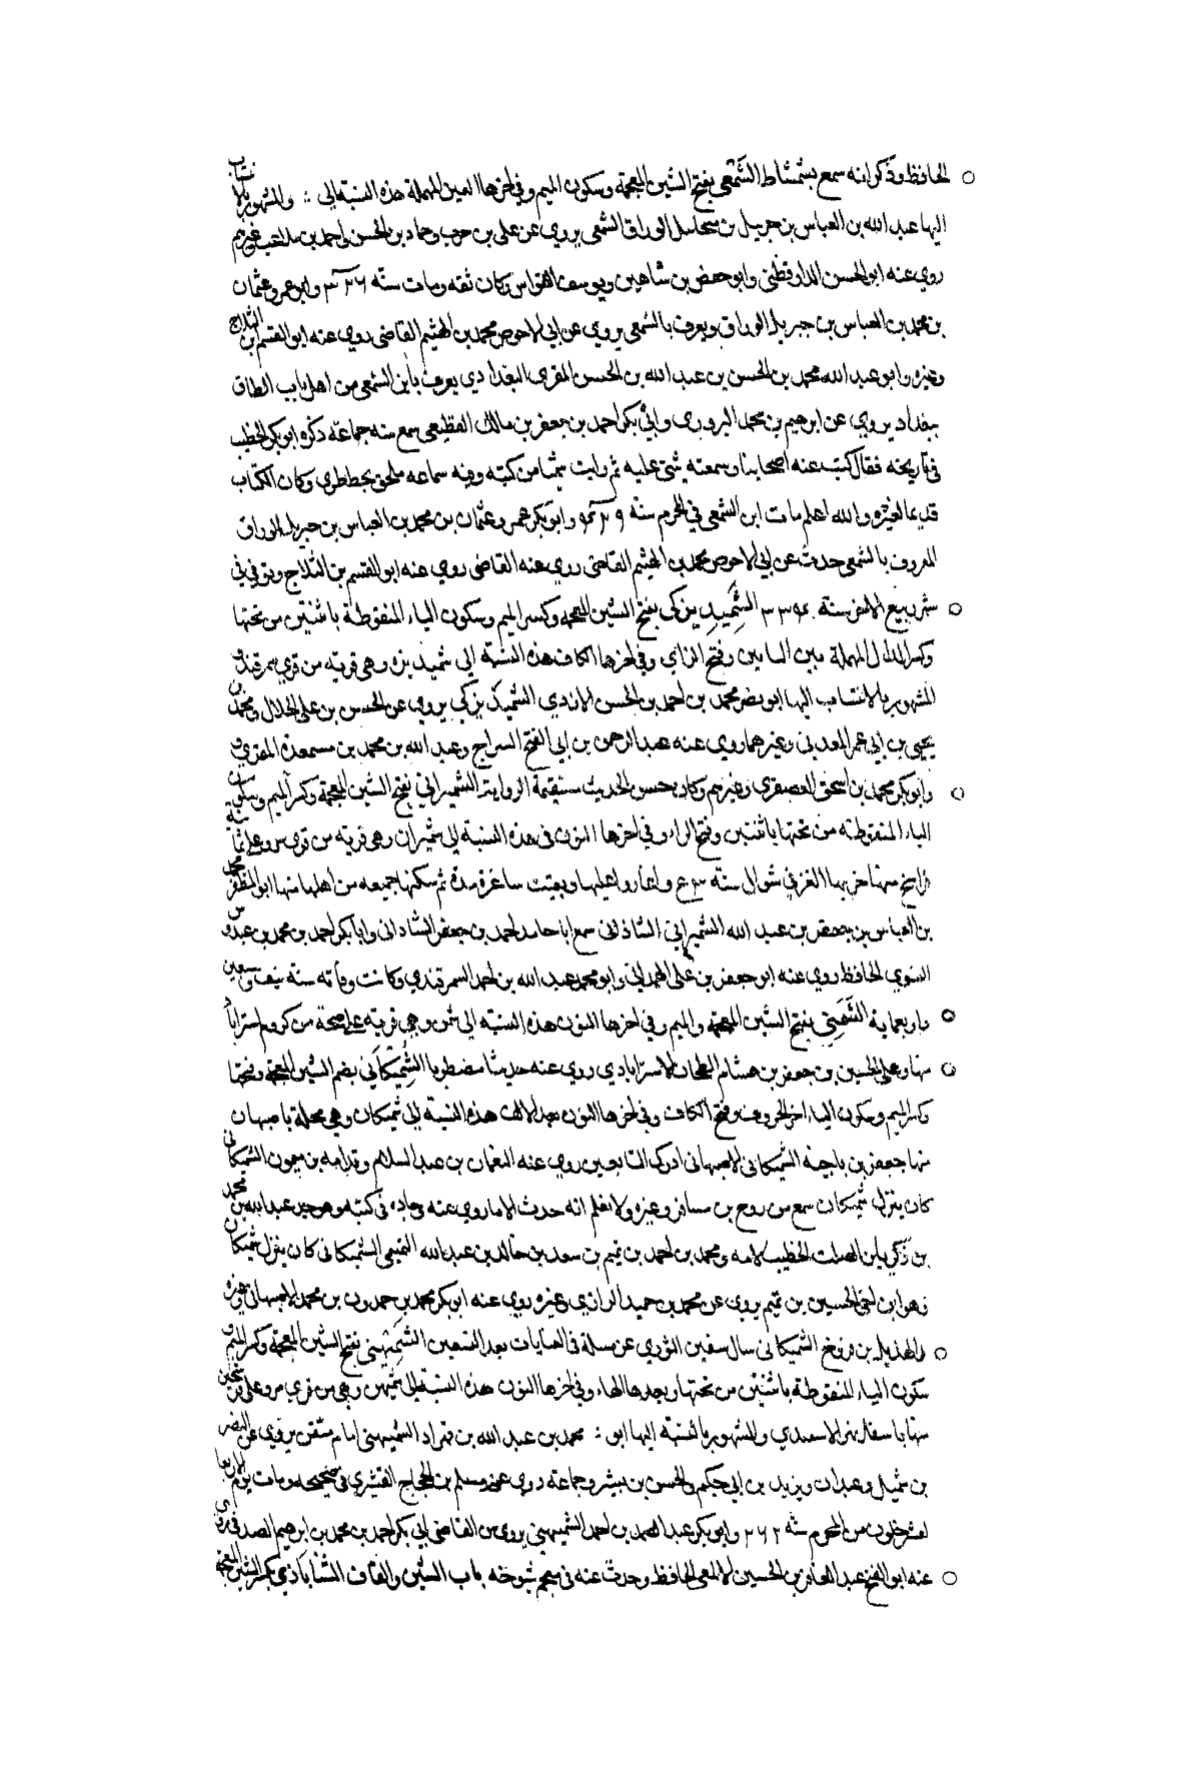 الحافظ وذكر انه سمع بشمشاط الشمعي بفتح الشين المعجمة وسكون الميم وفي اخرها العين المهملة هذه النسبة الى : والمشهور بالانتساب
اليها عبد الله بن العباس بن جبريل بن ميخائيل الوراق الشمعي يروي عن علي بن حرب وحماد بن الحسن واحمد بن ملاعب وغيرهم
روي عنه ابو الحسن الدارقطني وابو حفص بن شاهين ويوسف القواس وكان ثقه ومات سنة ٣٢٦ وابو عمرو عثمان
بن محمد بن العباس بن جبريل الوراق ويعرف بالشمعي يروي عن ابي الاحوص محمد بن الهيثم القاضي روي عنه ابو القسم ابن الثلاج
وغيره وابو عبد الله محمد بن الحسن بن عبد الله بن الحسن المقرى البغدادي يعرف بابن الشمعي من اهل باب الطاق
ببغداد يروي عن ابرهيم بن محمد البزوري وابي بكر احمد بن جعفر بن مالك القطيعي سمع منه جماعة ذكره ابو بكر الخطيب
في تاريخه فقال كتب عنه اصحابنا وسمعته يثني عليه ثم رايت شيئا من كتبه وفيه سماعه ملحق بخط طري وكان الكتاب
قديما لغيره والله اعلم مات ابن الشمعي في المحرم سنة وابو بكر عمرو عثمان بن محمد بن العباس بن جبريل الوراق
المعروف بالشمعي حدث عن ابي الاحوص محمد بن الهيثم القاضي روي عنه القاضي روي عنه ابو القسم بن الثلاج وتوفي في
شهر ربيع الاخر سنة الشميديزكي بفتح الشين المعجمه وكسر الميم وسكون الياء المنقوطة باثنتين من تحتها
وكسر الدال المهملة بين اليا ين وفتح الزاي وفي اخرها الكاف هذه النسبة الى شميديزه وهي قرية من قري سمرقند و
المشهور بالانتساب اليها ابو نصر محمد بن احمد بن الحسن الشميديزكي يروي عن الحسن بن علي الخلال ومحمد بن
يحيى بن ابي عمر العدني وغيرهما روي عنه عبد الرحمن بن ابي الفتح السراج وعبد الله بن محمد بن مسعدة المقري و
وابو بكر محمد بن اسحق العصفري وغيرهم وكان حسن الحديث مستقيمة الرواية الشميراني بفتح الشين المعجمة وكسر الميم وسكون
الياء المنقوطة من تحتها باثنتين وفتح الراء وفي اخرها النون في هذه النسبة الى شميران وهي قرية من قرى مرو على ثمانية
فراسخ منها خربها الغز في شوال سنة واغاروا عليها وبقيت ساغرة مدة ثم سكنها جميعه من اهلها منها ابو المظفر محمد
بن العباس بن جعفر بن عبد الله الشميراني سمع ابا حامد احمد بن جعفر وابا بكر احمد بن محمد بن عبدوس
النسوي الحافظ روي عنه ابو جعفر بن علي الهمداني وابو محمد عبد الله بن احمد السمرقندي وكانت وفاته سنة نيف وسبعين
واربعماية الشمني بفتح الشين المعجمة والميم وفي اخرها النون هذه النسبة الى شمن وهي قرية على صيحة من كروم استراباد
منها ابو علي الحسين بن جعفر بن هشام الطحان الاستراباذي روي عنه حديثا مضطربا الشميكاني بضم الشين المعجمة وفتحها
وكسر الميم وسكون الياء اخر الحروف وفتح الكاف وفي اخرها النون بعد الالف هذه النسبة الى شميكان وهي محلة باصبهان
منها جعفر بن ناجية الشميكاني الاصبهاني ادرك التابعين روي عنه النعمان بن عبد السلام وقدامه بن ميمون الشميكاني
كان ينزل شميكان سمع من روح بن مسافر وغيره ولا نعلم انه حدث الا ما روي عنه وجاده في كتبه وهو جد عبد الله بن محمد
بن زكريا بن الصلت الخطيب لامه ومحمد بن احمد بن تميم بن سعد بن خالد بن عبد الله التميمي الشميكاني كان ينزل شميكان
وهو ابن اخي الحسين بن تميم يروي عن محمد بن حميد الرازي وغيره روي عنه ابو بكر محمد بن حمدون بن محمد الاصبهاني وغيره
والهذيل بن فروخ الشميكاني سال سفين الثوري عن مسلة في العبادات بعد التسعين الشميهني بفتح الشين المعجمة وكسر الميم و
سكون الياء المنقوطة باثنتين من تحتها وبعدها الهاء وفي اخرها النون هذه النسبة الى شميهن وهي من قري مرو على فرسخين
منها باسفل نهر والمشهور بالنسبة اليها ابو : محمد بن عبد الله بن قهزاد الشميهني امام متقن يروي عن النضر
بن شميل وعبدان ويزيد بن ابي حكيم والحسن بن بشر وجماعة روي عنه مسلم بن الحجاج القشيري في صحيحه ومات يوم الاربعا
لعشر خلون من المحرم سنة ٢٦٢ وابو بكر عبد الصمد بن احمد الشميهني يروي عن القاضي ابي بكر احمد بن محمد بن ابرهيم الصدفي روي
عنه ابو الفتح عبد الغافر بن الحسين الالمعي الحافظ وحدث عنه في معجم شيوخه باب الشين والقاف الشاباذي بكسر الشين المعجمة